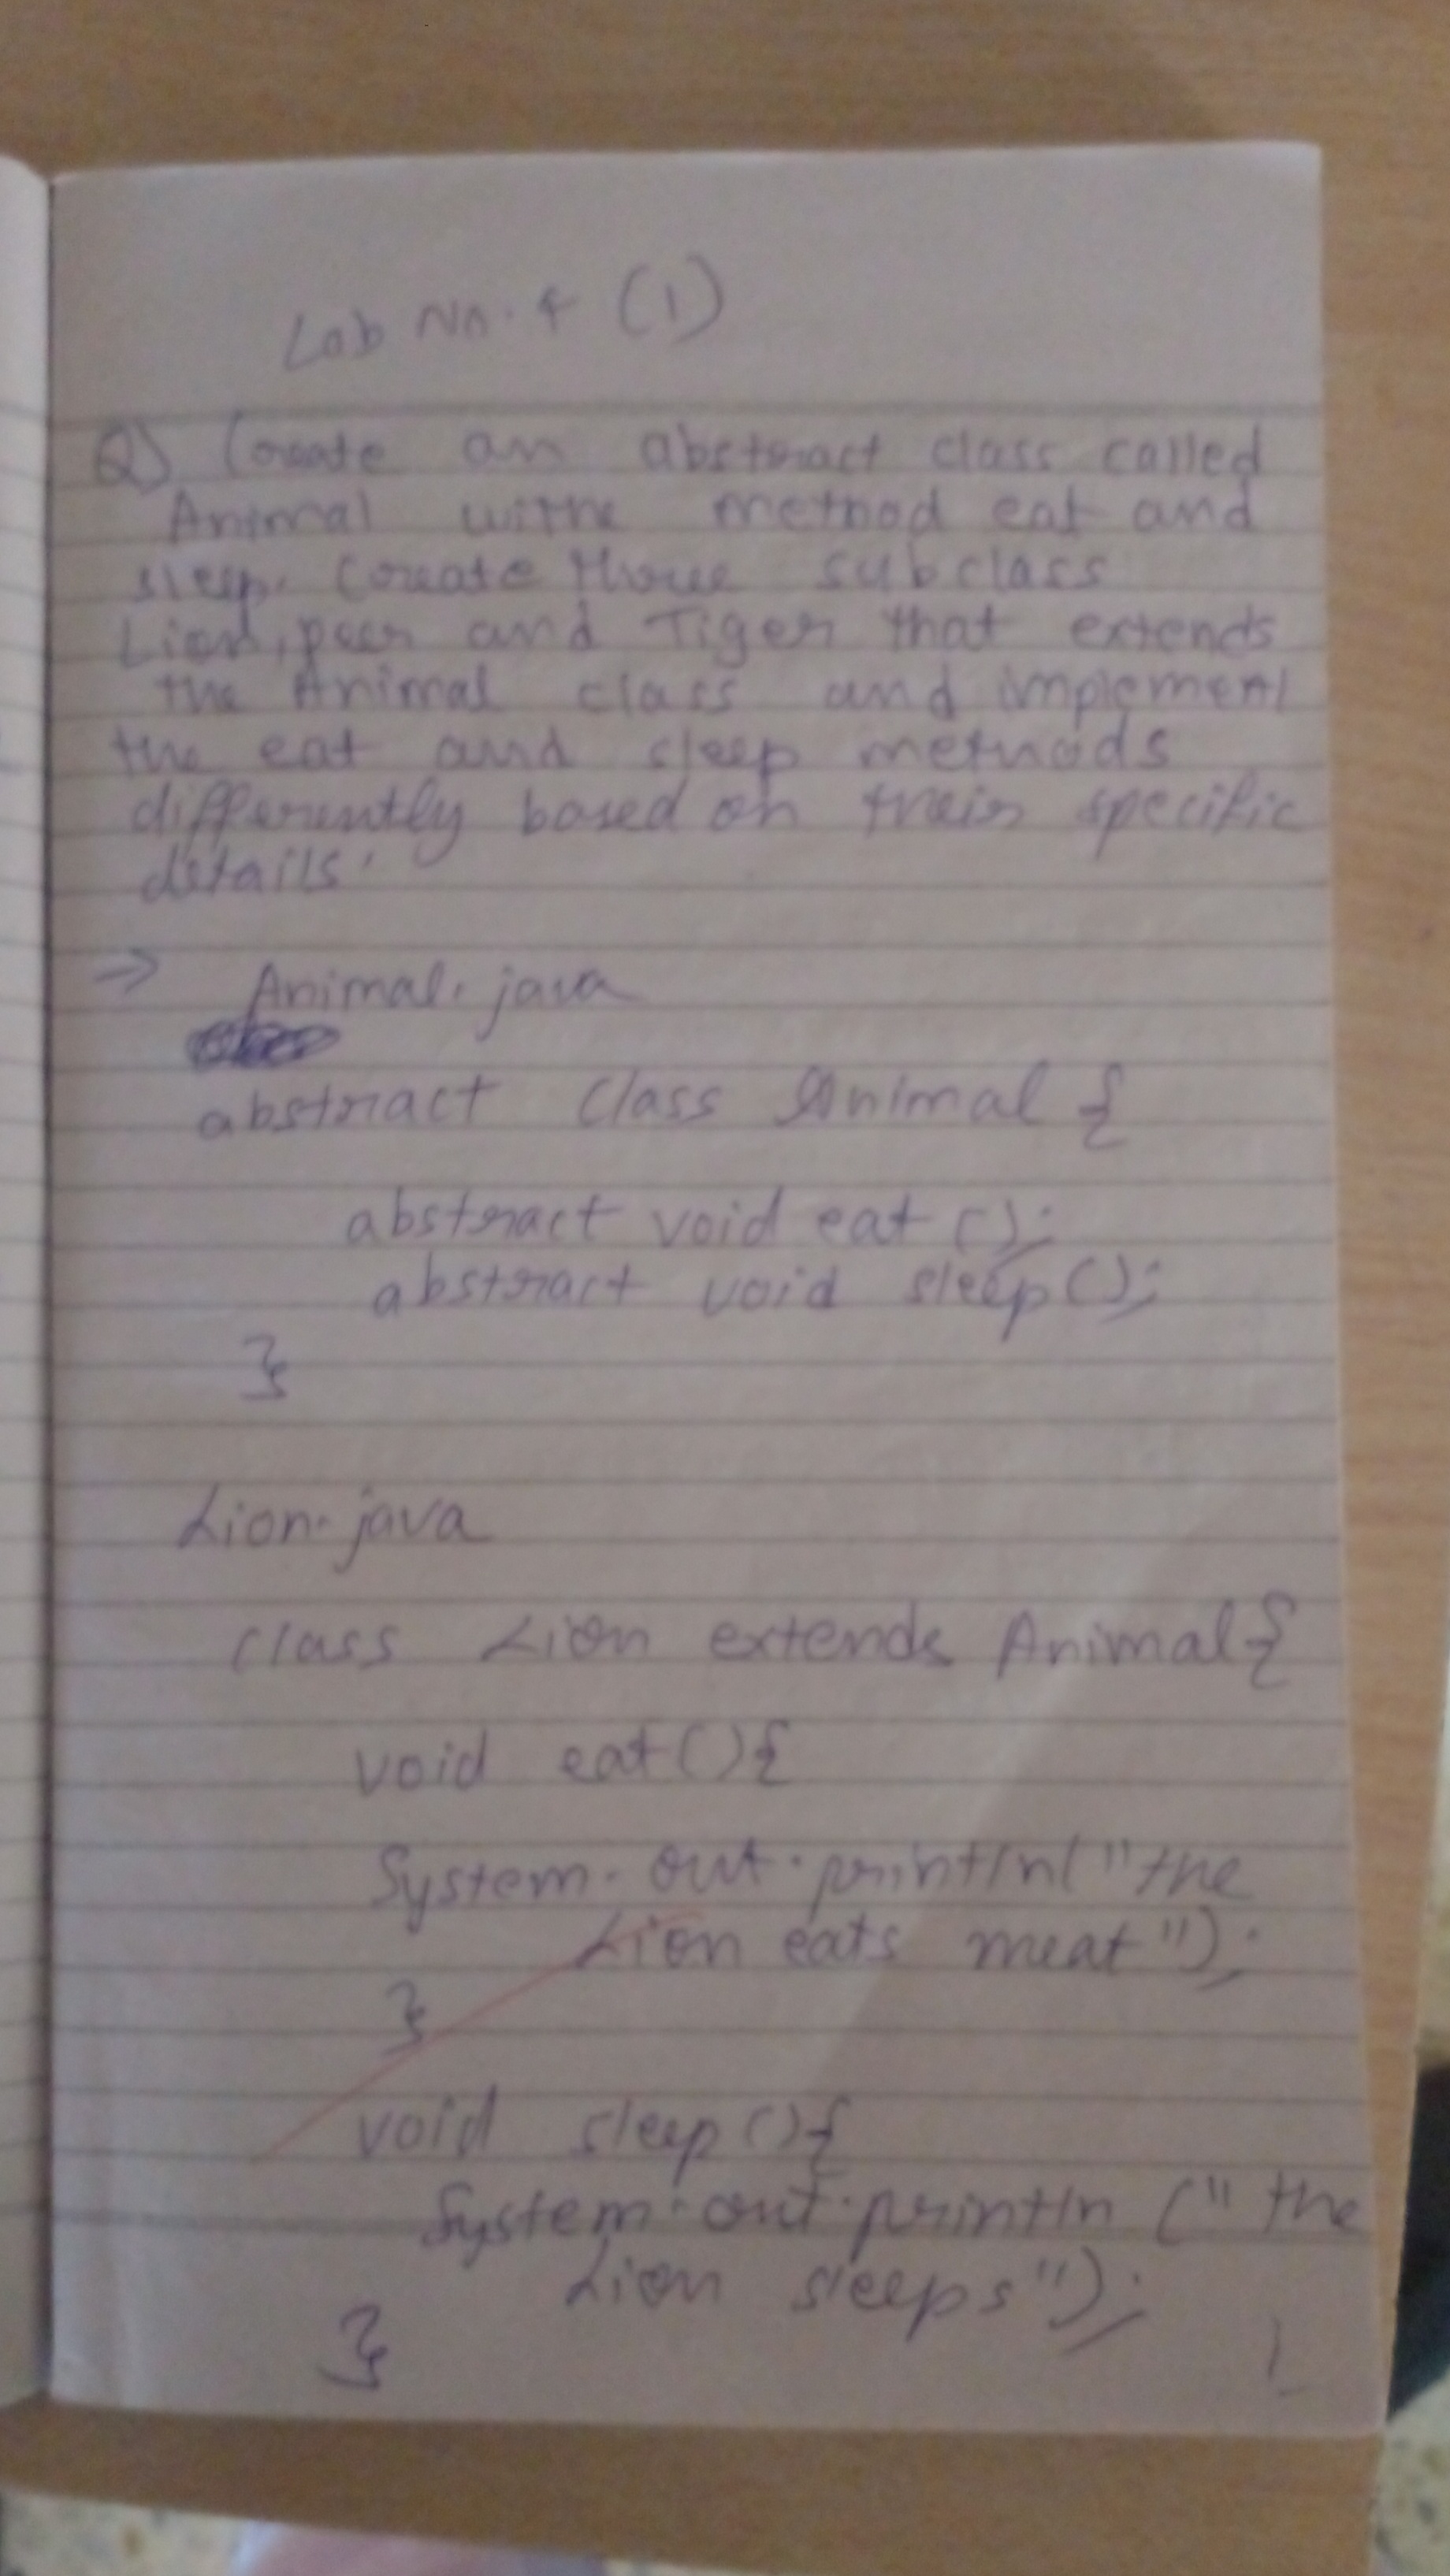 Lab No. 4 (1)
Q) Create an abstract class called
Animal withe method eat and
sleep. Create three subclass
Lion, and Tiger that extends
the Animal class and implement
the eat and sleep methods
differently based on their specific
details.
⇒ Animal.java
abstract class Animal {
abstract void eat ();
abstract void sleep();
}
Lion.java
class Lion extends Animal{
void eat(){
System.out.println("the
Lion eats meat");
}
void sleep(){
System.out.println ("the
Lion sleeps");
}